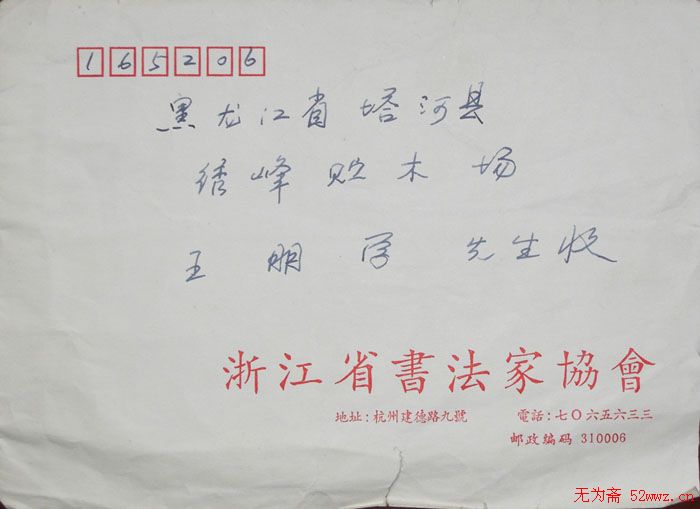 165206
黑龙江省塔河县
绣峰贮木场
王朋学先生收
浙江省書法家協會
地址:杭州建德路九號 電話:七〇六五六三三
邮政编码 310006
无为斋 52wwz.cn